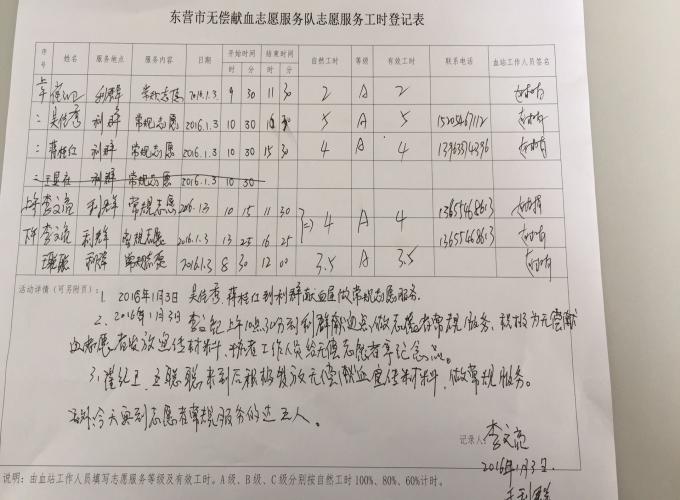 东营市无偿献血志愿服务队志愿服务工时登记表
序号 姓名 服务地点 服务内容 日期 开始时间 结束时间 自然工时 等级 有效工时 联系电话 血站工作人员签名
时 分 时 分
上午 利群 常规志愿 2016.1.3 9 30 11 30 2 A 2
吴传秀 利群 常规志愿 2016.1.3 10 30 30 5 A 5
蒋桂红 利群 常规志愿 2016.1.3 10 30 15 30 4 A 4
利群 常规志愿 2016.1.3 10 30
上午 李文亮 利群 常规志愿 2016.1.3 10 15 11 30 4 A 4 13655468613
下午 李文亮 利群 常规志愿 2016.1.3 13 25 16 25 13655468613
王聪聪 利群 常规志愿 2016.1.3 8 30 12 00 3.5 A 3.5
活动详情（可另附页）：1. 2016年1月3日 吴传秀 蒋桂红到利群献血屋做常规志愿服务。
2. 2016年1月3日 李文亮上午10点30分到利群献血点做志愿者常规服务、积极为无偿献
血志愿者发放宣传材料、协者工作人员给无偿志愿者拿记念品。
3. 崔红卫、王聪聪来到后积极发放无偿献血宣传材料、做常规服务。
今天来到志愿者常规服务的达五人。
记录人：李文亮
2016年1月3日.
说明：由血站工作人员填写志愿服务等级及有效工时。A级、B级、C级分别按自然工时100%、80%、60%计时。